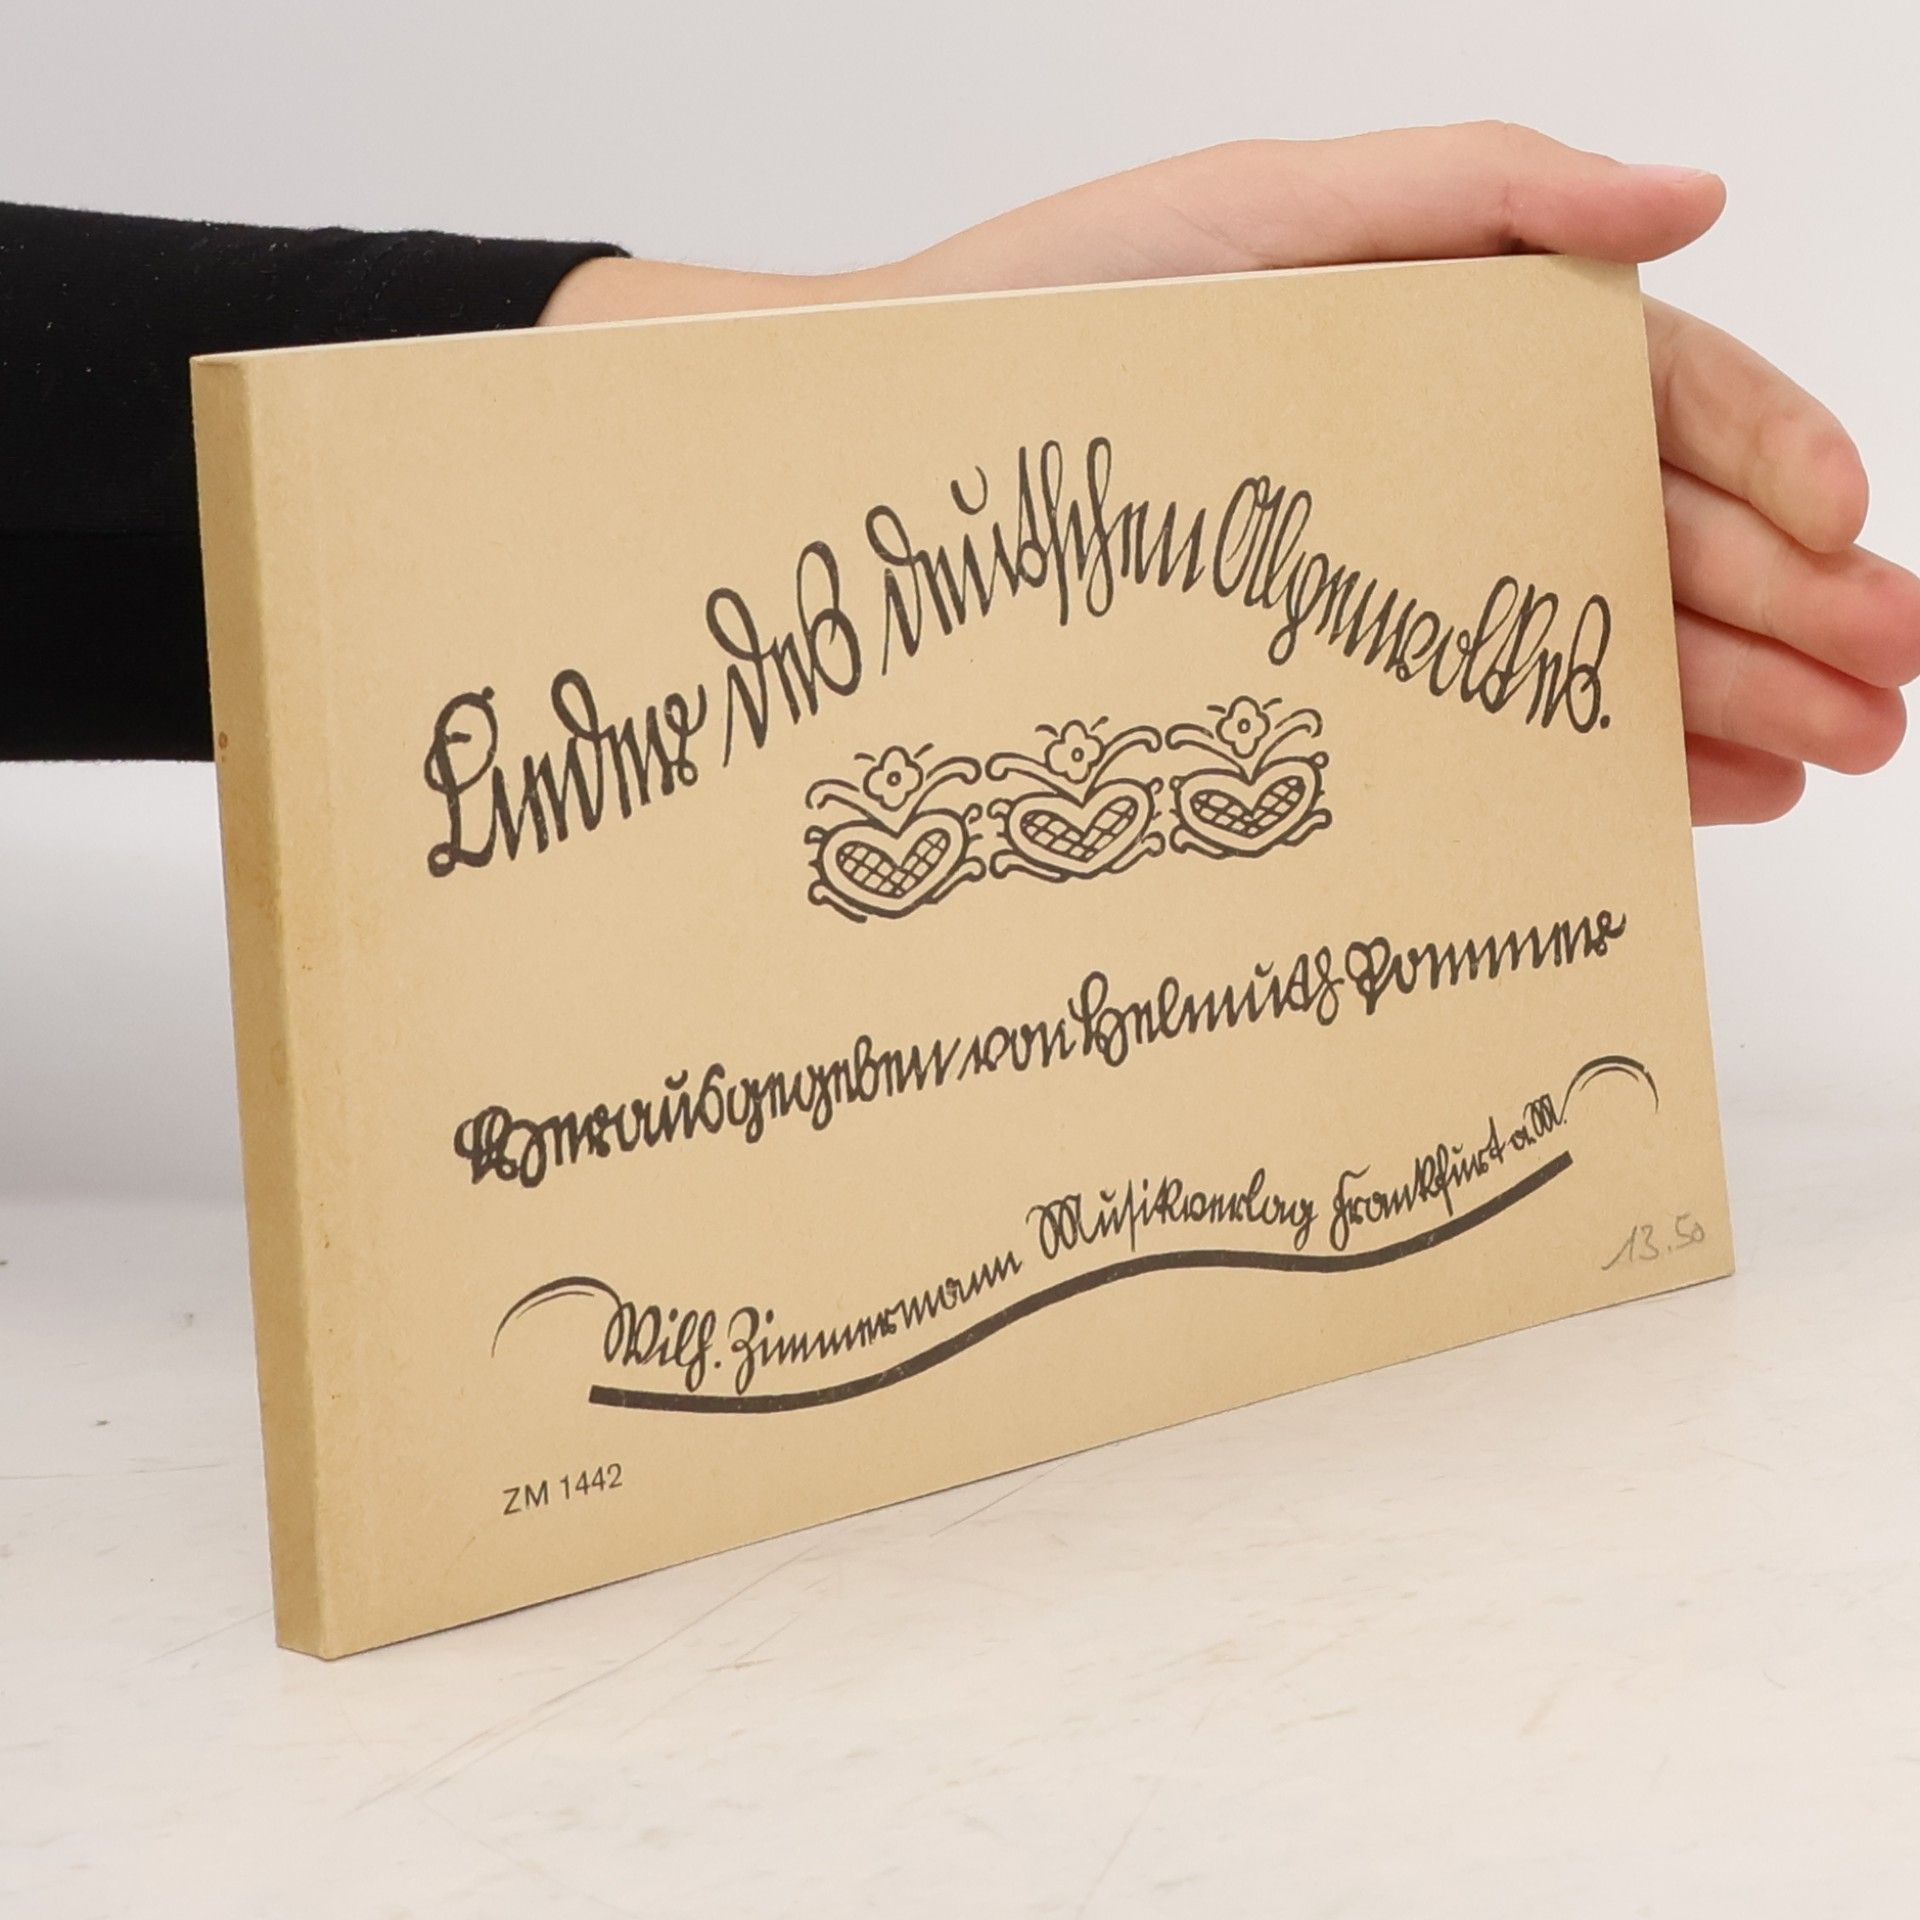 Lieder des deutschen Alpenvolkes.
Herausgegeben von Helmuth Pommer
Wilh. Zimmermann Musikverlag Frankfurt a.M.
13.50
ZM 1442